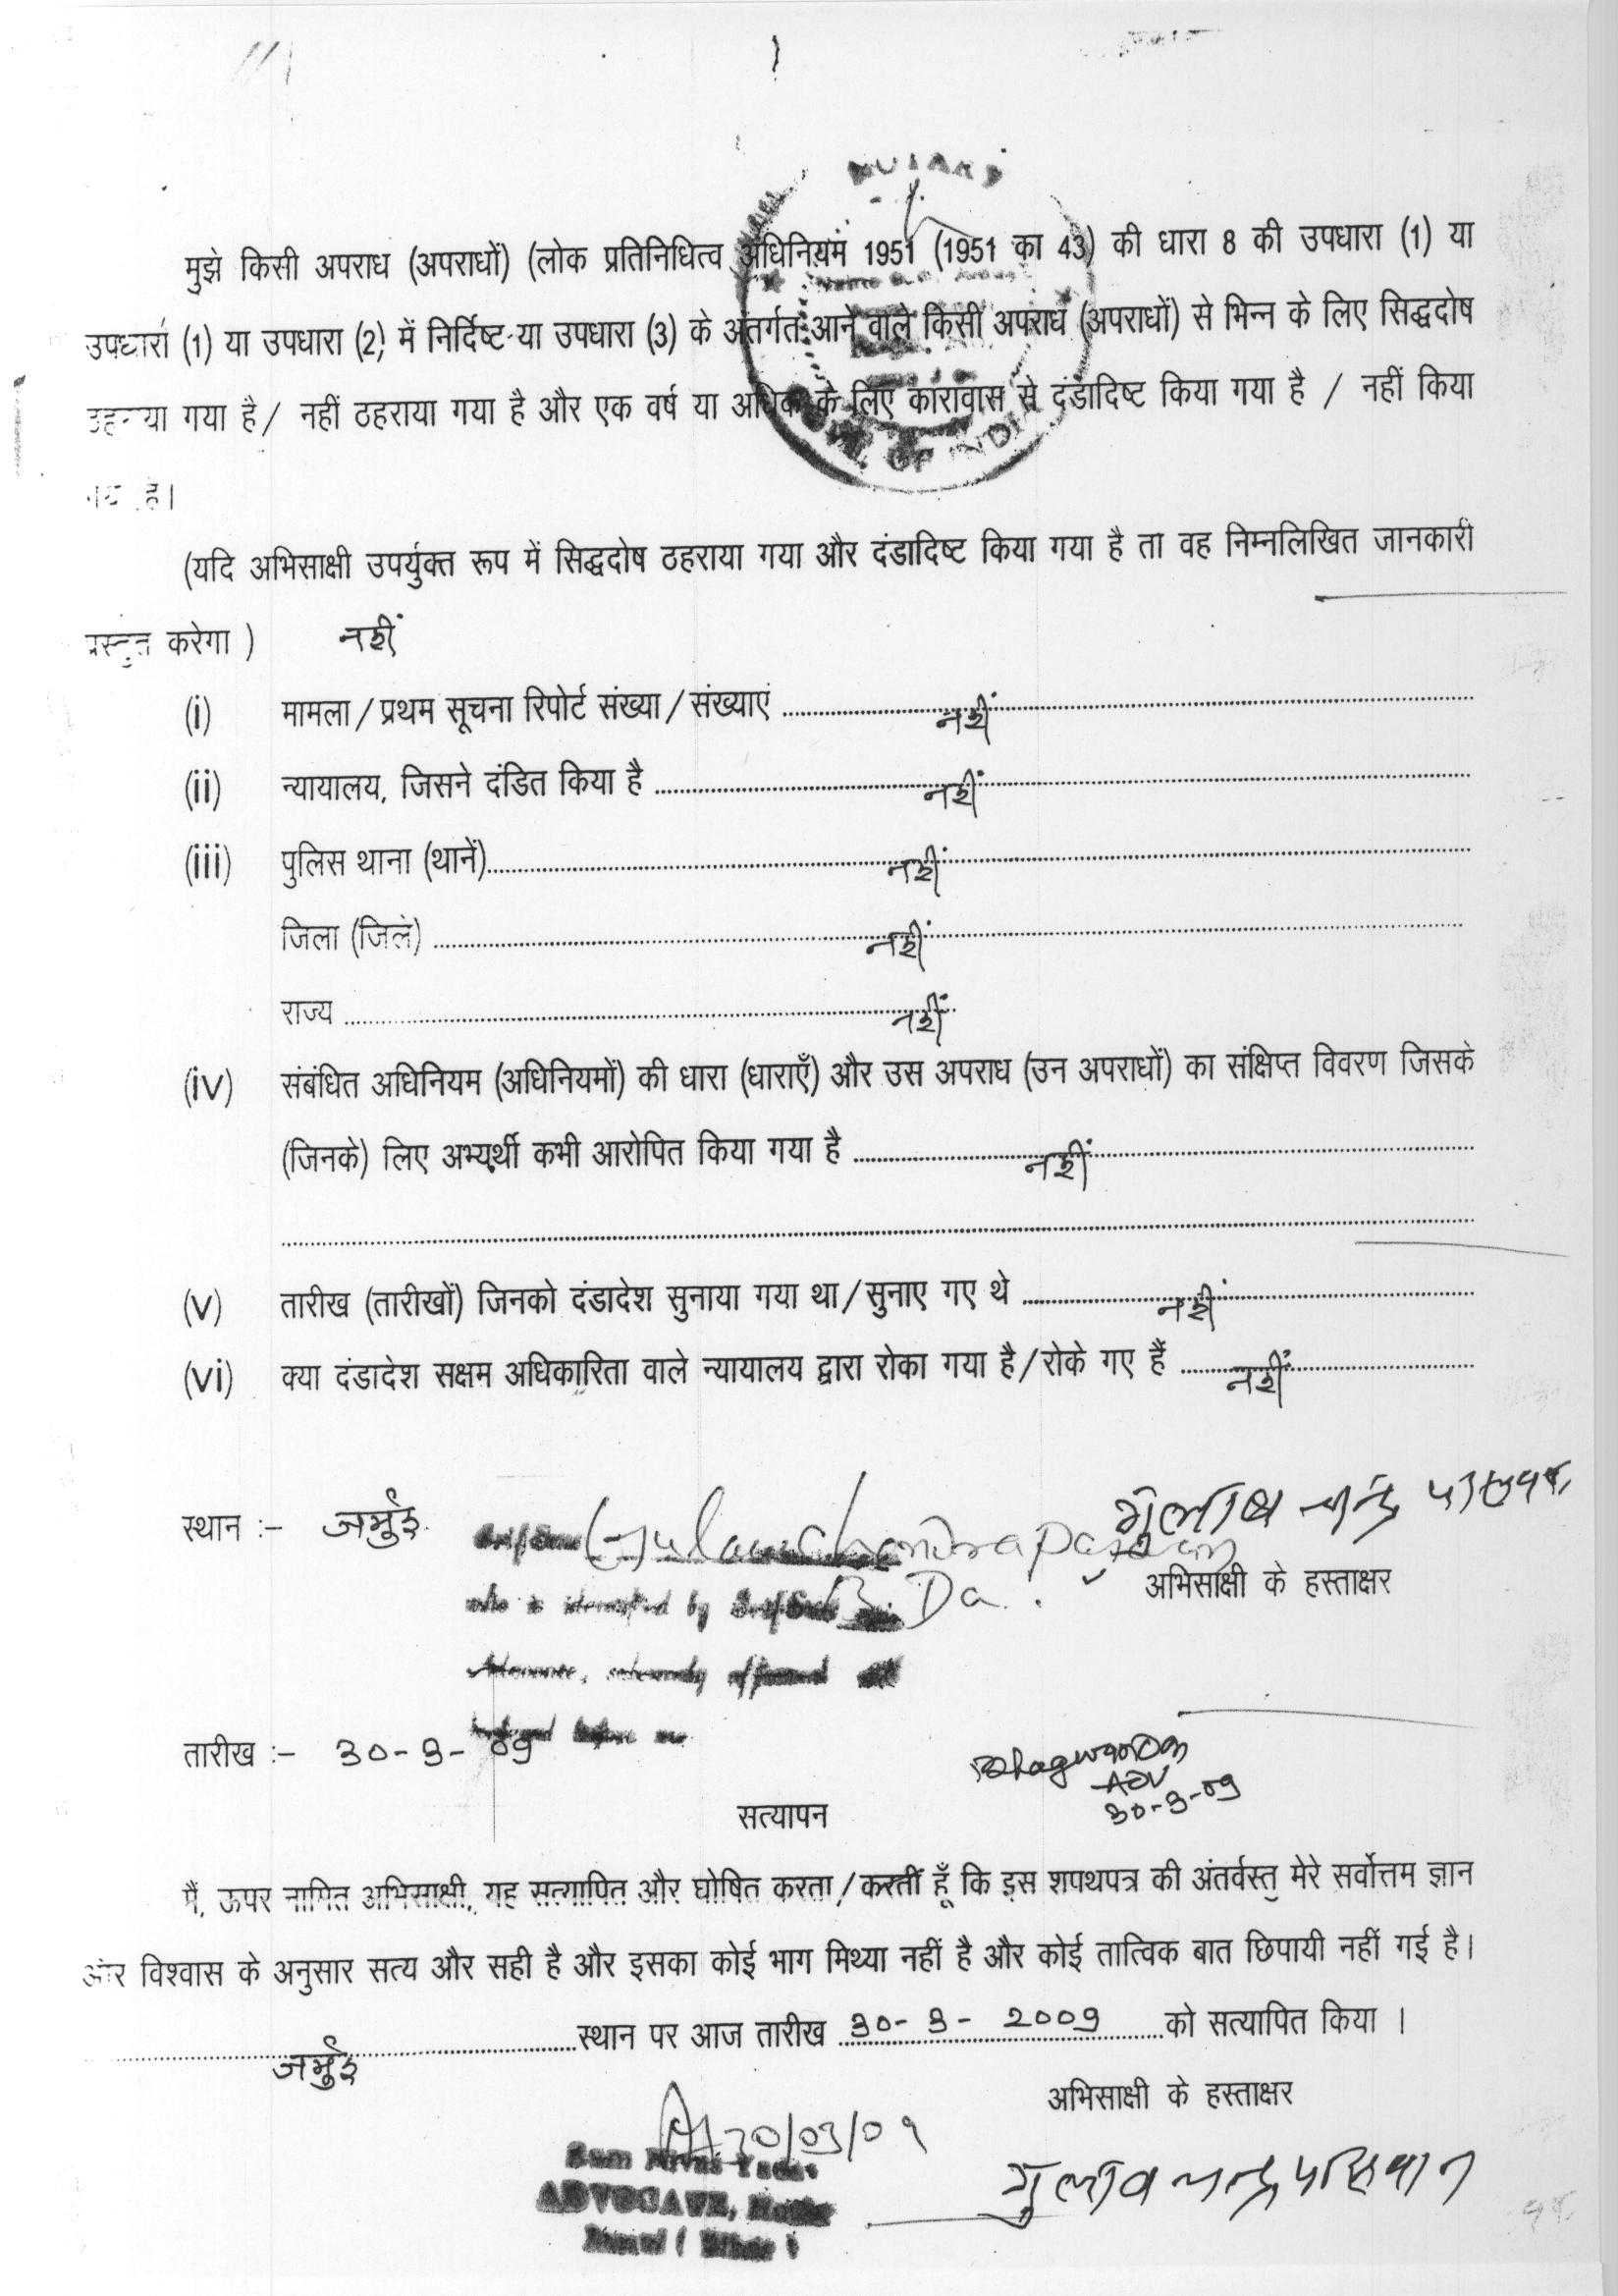 NOTARY
मुझे किसी अपराध (अपराधों) (लोक प्रतिनिधित्व अधिनियम 1951 (1951 का 43) की धारा 8 की उपधारा (1) या
उपधारा (1) या उपधारा (2) में निर्दिष्ट या उपधारा (3) के अंतर्गत आने वाले किसी अपराध (अपराधों) से भिन्न के लिए सिद्धदोष
ठहराया गया है / नहीं ठहराया गया है और एक वर्ष या अधिक के लिए कारावास से दंडादिष्ट किया गया है / नहीं किया
गया है।
OF INDIA
(यदि अभिसाक्षी उपर्युक्त रूप में सिद्धदोष ठहराया गया और दंडादिष्ट किया गया है ता वह निम्नलिखित जानकारी
प्रस्तुत करेगा ) नहीं
(i) मामला / प्रथम सूचना रिपोर्ट संख्या / संख्याएं नहीं
(ii) न्यायालय, जिसने दंडित किया है नहीं
(iii) पुलिस थाना (थानें) नहीं
जिला (जिले) नहीं
राज्य नहीं
(iv) संबंधित अधिनियम (अधिनियमों) की धारा (धाराएँ) और उस अपराध (उन अपराधों) का संक्षिप्त विवरण जिसके
(जिनके) लिए अभ्यर्थी कभी आरोपित किया गया है नहीं
(v) तारीख (तारीखों) जिनको दंडादेश सुनाया गया था / सुनाए गए थे नहीं
(vi) क्या दंडादेश सक्षम अधिकारिता वाले न्यायालय द्वारा रोका गया है / रोके गए हैं नहीं
स्थान :- जमुई Gulab Chandra Paswan गुलाब चन्द्र पासवान
who is identified by B. Das अभिसाक्षी के हस्ताक्षर
तारीख :- 30-3-09
Bhagwan Das
ADV
30-3-09
सत्यापन
मैं, ऊपर नामित अभिसाक्षी, यह सत्यापित और घोषित करता / करती हूँ कि इस शपथपत्र की अंतर्वस्तु मेरे सर्वोत्तम ज्ञान
और विश्वास के अनुसार सत्य और सही है और इसका कोई भाग मिथ्या नहीं है और कोई तात्विक बात छिपायी नहीं गई है।
जमुई स्थान पर आज तारीख 30-3-2009 को सत्यापित किया ।
अभिसाक्षी के हस्ताक्षर
30/03/09
Ram Nivas Yadav
ADVOCATE, Notary
Jamui (Bihar)
गुलाब चन्द्र पासवान